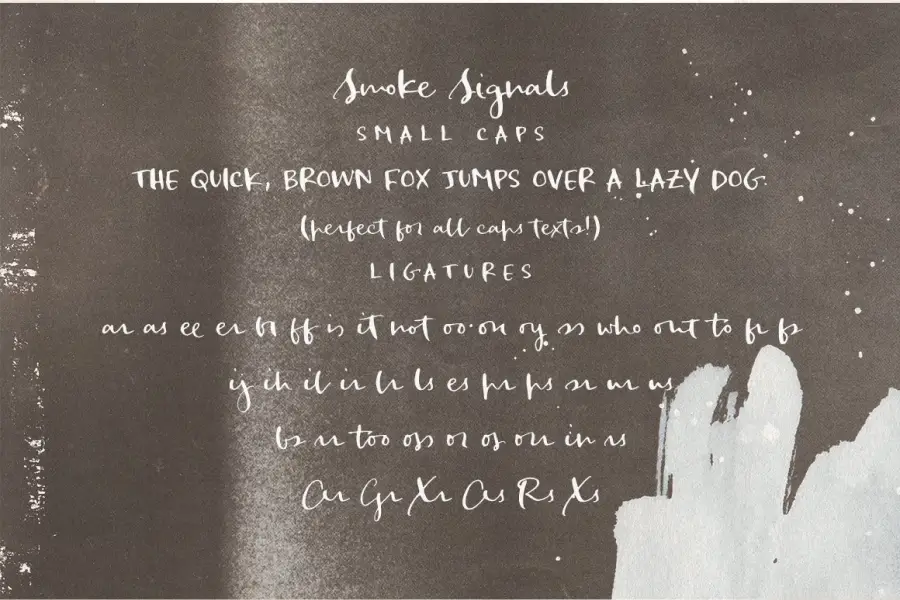 Smoke Signals
SMALL CAPS
THE QUICK, BROWN FOX JUMPS OVER A LAZY DOG.
(perfect for all caps texts!)
LIGATURES
ar as ee er br ff is it not oo on oy ss who out to fr fs
ij ir lr ls es pr ps sr ur us
bs rr too ops or os our in rs
Gr Xr Rs Xs